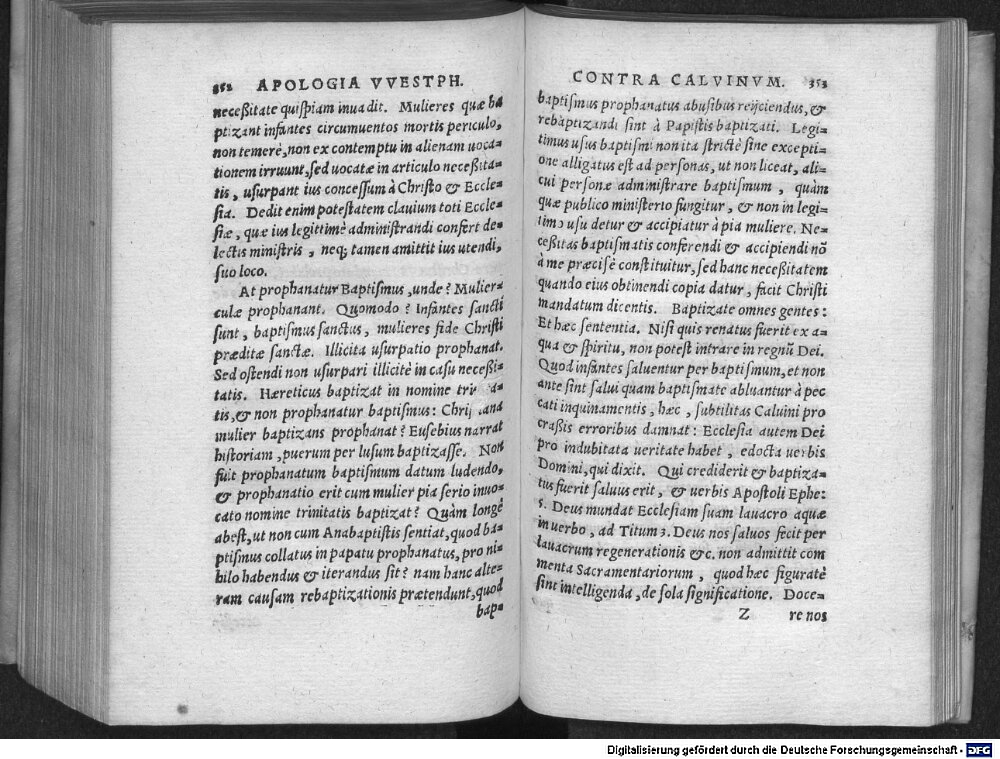 352 APOLOGIA VVESTPH.
neceßitate quiſpiam inuadit. Mulieres quæ ba
ptizant infantes circumuentos mortis periculo,
non temerè, non ex contemptu in alienam uoca-
tionem irruunt, ſed uocatæ in articulo neceßita-
tis, uſurpant ius conceſſum à Chriſto & Eccle-
ſia. Dedit enim poteſtatem clauium toti Eccle-
ſiæ, quæ ius legittimè adminiſtrandi confert de-
lectis miniſtris, neq; tamen amittit ius utendi,
ſuo loco.
At prophanatur Baptiſmus, unde? Mulier-
culæ prophanant. Quomodo? Infantes ſancti
ſunt, baptiſmus ſanctus, mulieres fide Chriſti
præditæ ſanctæ. Illicita uſurpatio prophanat.
Sed oſtendi non uſurpari illicitè in caſu neceßi-
tatis. Hæreticus baptizat in nomine tri a-
tis, & non prophanatur baptiſmus: Chriſ iana
mulier baptizans prophanat? Euſebius narrat
hiſtoriam, puerum per luſum baptizaſſe. Non
fuit prophanatum baptiſmum datum ludendo,
& prophanatio erit cum mulier pia ſerio inuo-
cato nomine trinitatis baptizat? Quàm longè
abeſt, ut non cum Anabaptiſtis ſentiat, quod ba-
ptiſmus collatus in papatu prophanatus, pro ni-
hilo habendus & iterandus ſit? nam hanc alte-
ram cauſam rebaptizationis prætendunt, quod
bap-
CONTRA CALVINVM. 353
baptiſmus prophanatus abuſibus reijciendus, &
rebaptizandi ſint à Papiſtis baptizati. Legi-
timus uſus baptiſmi non ita ſtrictè ſine excepti-
one alligatus eſt ad perſonas, ut non liceat, ali-
cui perſonæ adminiſtrare baptiſmum, quàm
quæ publico miniſterio fungitur, & non in legi-
timo uſu detur & accipiatur à pia muliere. Ne-
ceßitas baptiſmatis conferendi & accipiendi nõ
à me præciſè conſtituitur, ſed hanc neceßitatem
quando eius obtinendi copia datur, facit Chriſti
mandatum dicentis. Baptizate omnes gentes:
Et hæc ſententia. Niſi quis renatus fuerit ex a-
qua & ſpiritu, non poteſt intrare in regnũ Dei.
Quod infantes ſaluentur per baptiſmum, et non
ante ſint ſalui quam baptiſmate abluantur à pec
cati inquinamentis, hæc, ſubtilitas Caluini pro
craßis erroribus damnat: Eccleſia autem Dei
pro indubitata ueritate habet, edocta uerbis
Domini, qui dixit. Qui crediderit & baptiza-
tus fuerit ſaluus erit, & uerbis Apoſtoli Ephe:
5. Deus mundat Eccleſiam ſuam lauacro aquæ
in uerbo, ad Titum 3. Deus nos ſaluos fecit per
lauacrum regenerationis &c. non admittit com
menta Sacramentariorum, quod hæc figuratè
ſint intelligenda, de ſola ſignificatione. Doce-
Z re nos
Digitalisierung gefördert durch die Deutsche Forschungsgemeinschaft - DFG